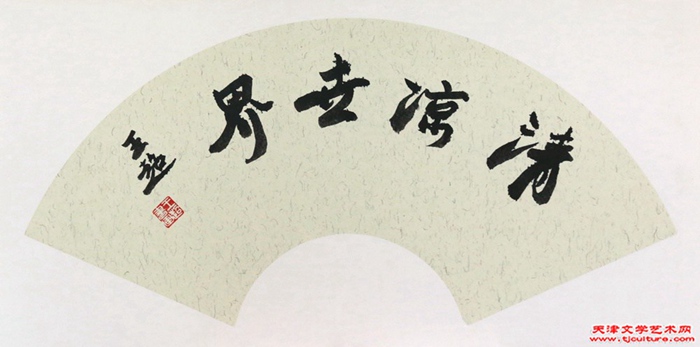 清凉世界
王超
天津文学艺术网
www.tjculture.com